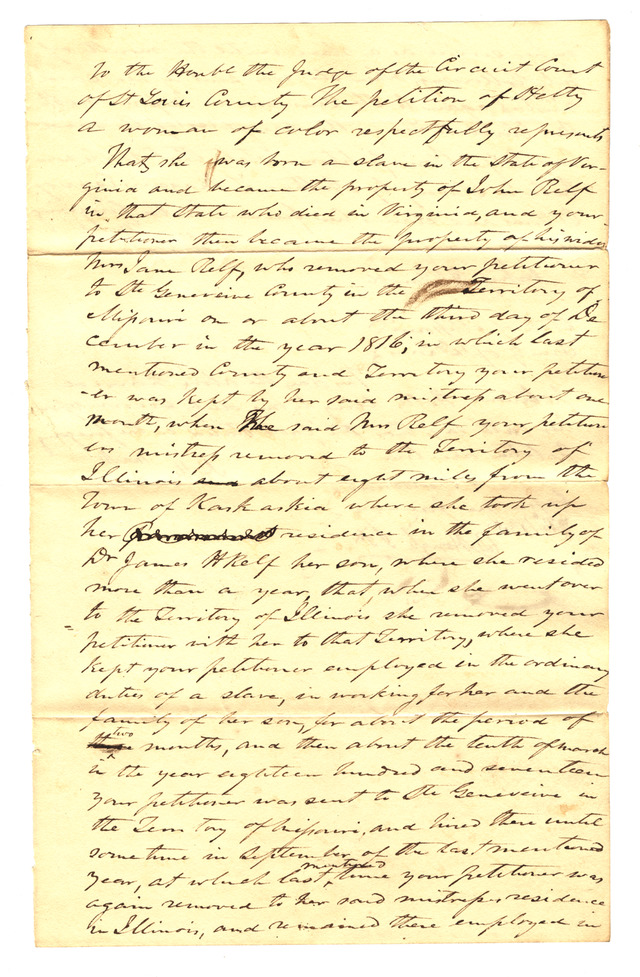 To the Honbl the Judge of the Circuit Court
of St Louis County The petition of Hetty
a woman of color respectfully represents
That she was born a slave in the State of Vir-
ginia and became the property of John Relf
in that State who died in Virginia, and your
petitioner then became the property of his widow
Mrs Jane Relf, who removed your petitioner
to Ste Genevieve County in the Territory of
Missouri on or about the third day of De
cember in the year 1816, in which last
mentioned County and Territory your petition
-er was kept by her said mistress about one
month, when said Mrs Relf your petition
ers mistress removed to the Territory of
Illinois about eight miles from the
Town of Kaskaskia where she took up
her residence in the family of
Dr James H Relf her son, where she resided
more than a year, that, when she went over
to the Territory of Illinois she removed your
petitioner with her to that Territory, where she
kept your petitioner employed in the ordinary
duties of a slave, in working for her and the
family of her son, for about the period of
two months, and then about the tenth of march
in the year eighteen hundred and seventeen
your petitioner was sent to Ste Genevieve in
the Territory of Missouri, and hired there until
some time in September of the last mentioned
year, at which last mentioned time your petitioner was
again removed to her said mistress residence
in Illinois, and remained there employed in